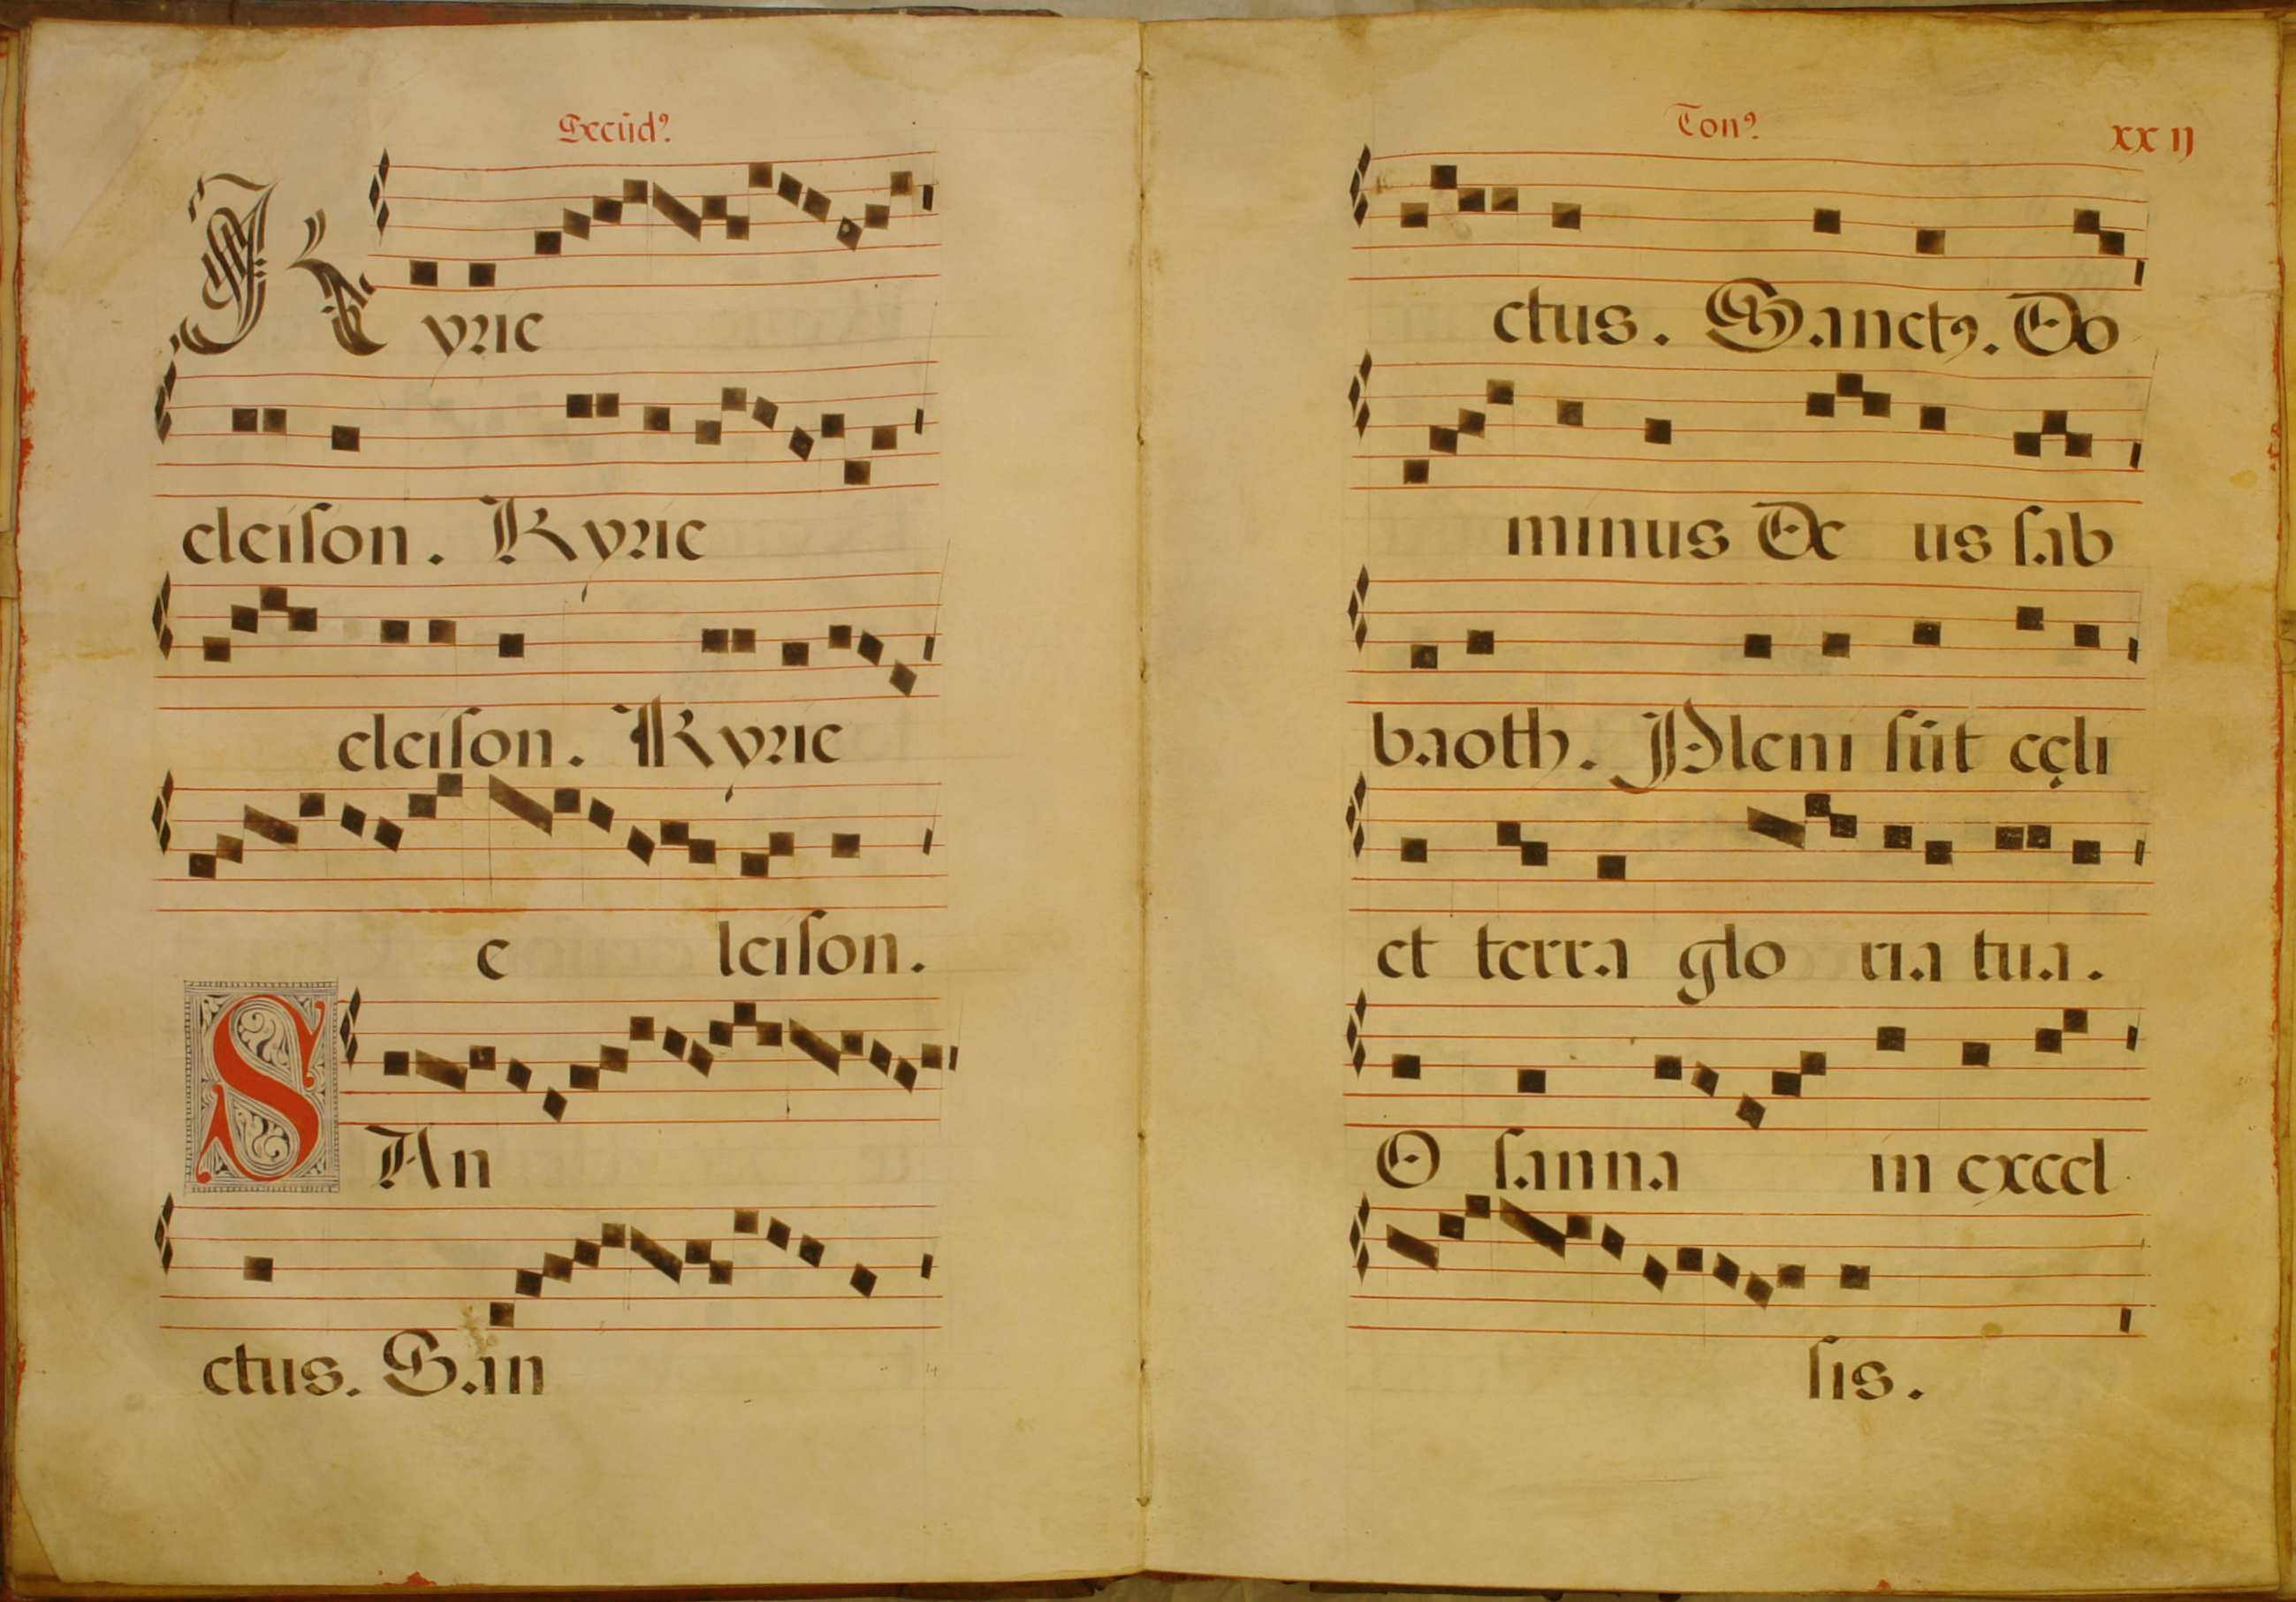 Secūdꝰ
Kyrie
eleiſon. Kyrie
eleiſon. Kyrie
e leiſon.
SAn
ctus. San
Tonꝰ
xx ij
ctus. Sanctꝰ. Do
minus De us ſab
baoth. Pleni ſūt cęli
et terra glo ria tua.
O ſanna in excel
ſis.